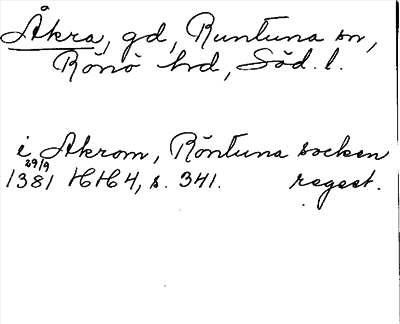 Åkra, gd, Runtuna sn,
Rönö hd, Söd. l.
i Akrom, Röntuna socken
29/9
1381 HH 4, s. 341. regest.